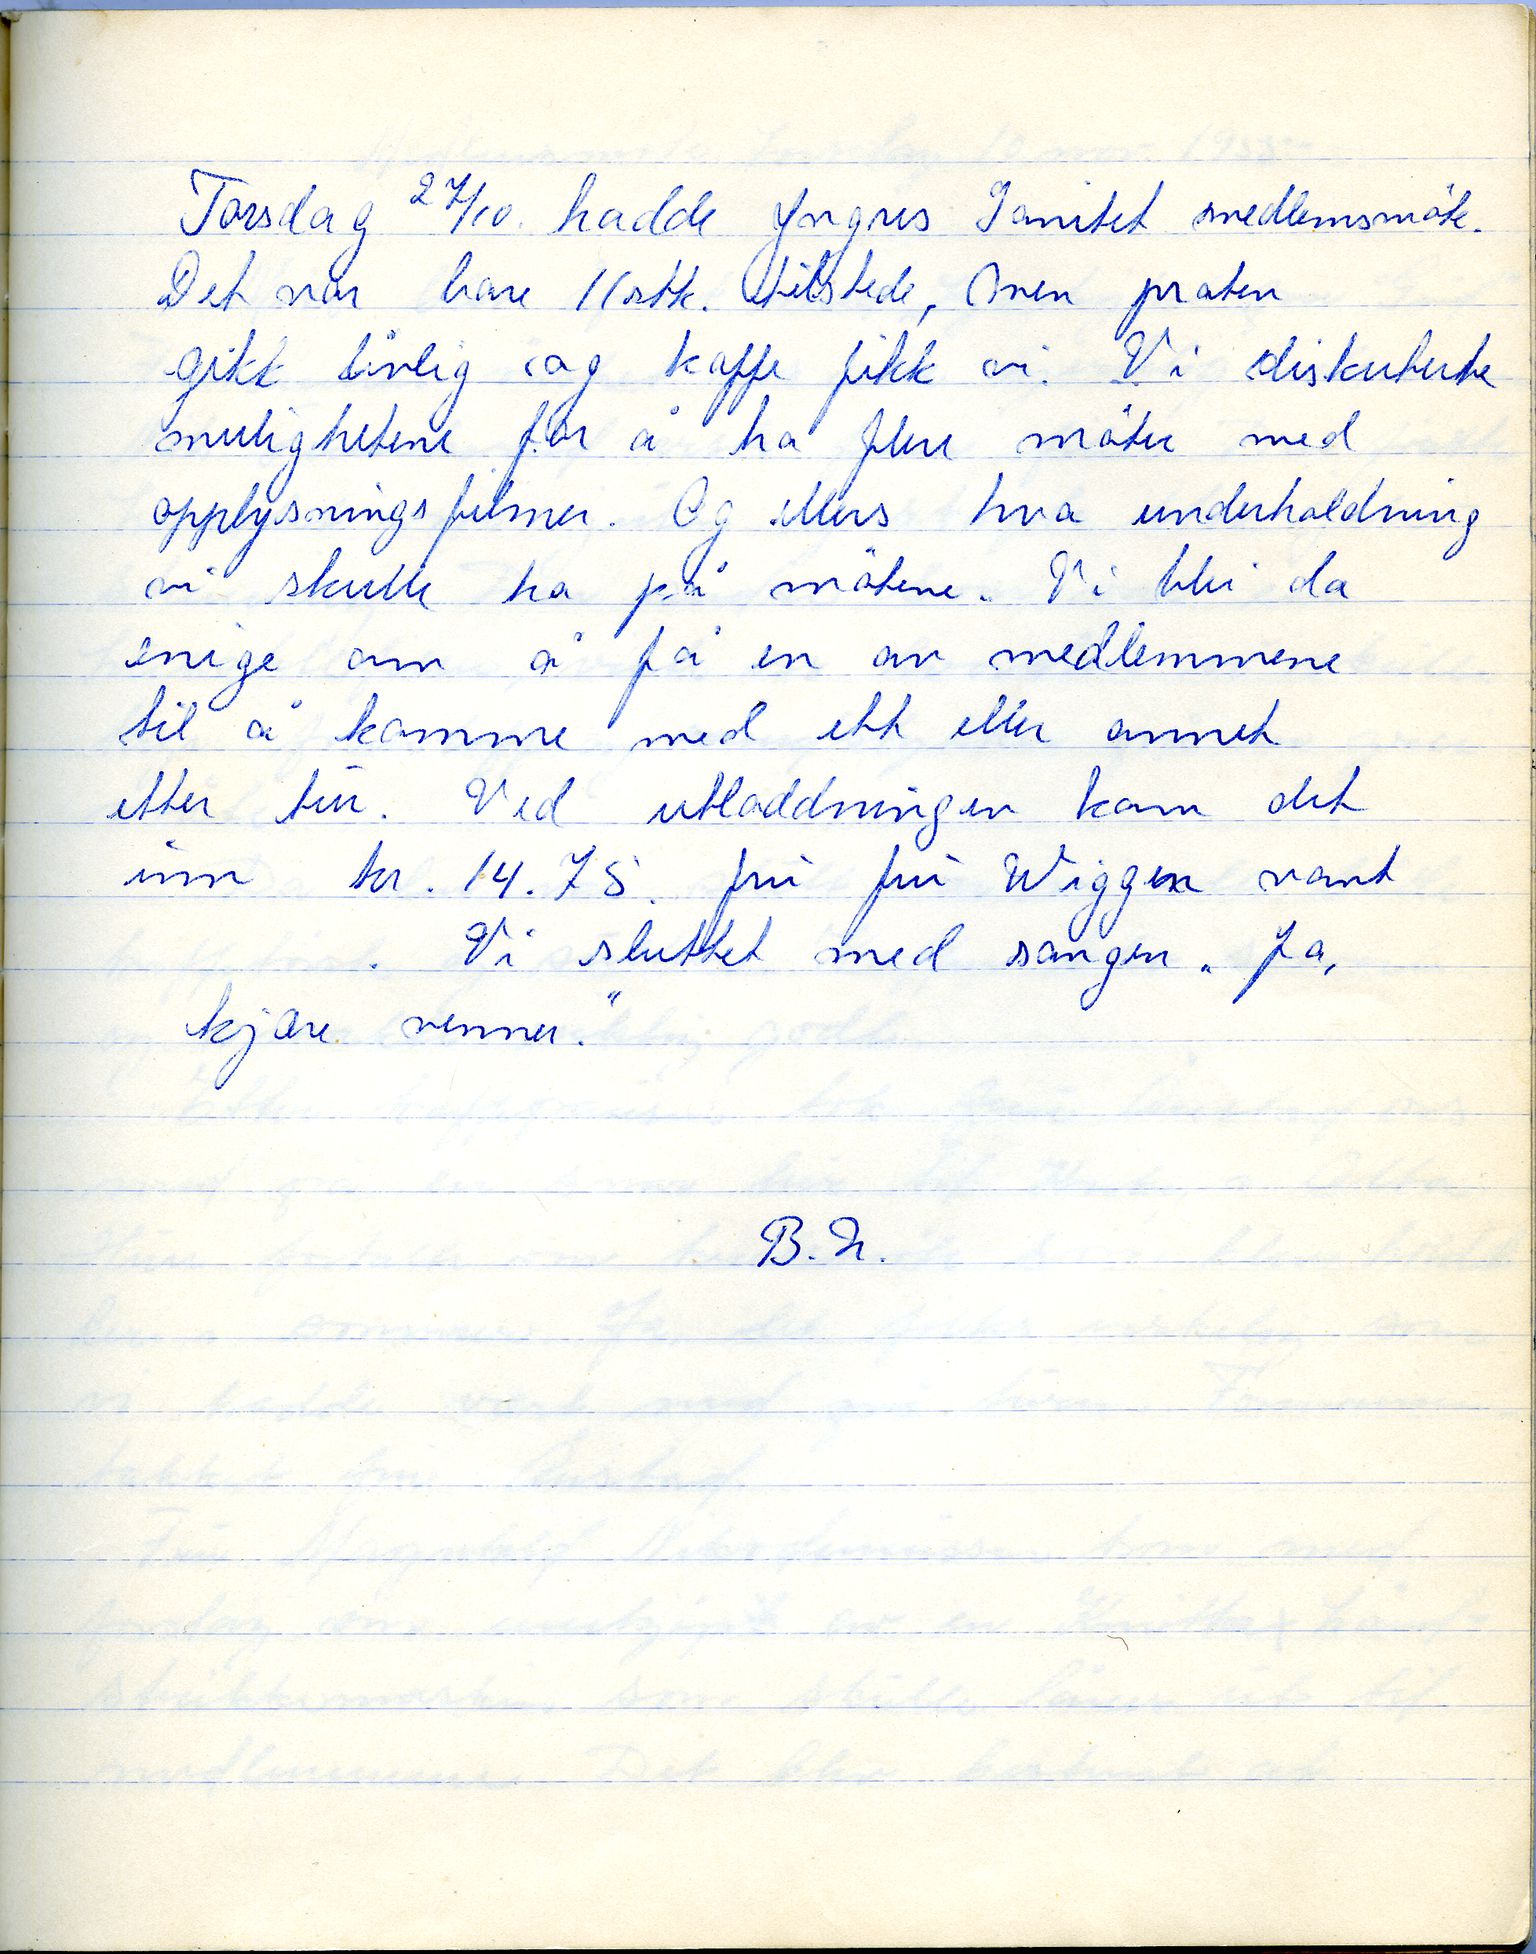 Torsdag 27/10. hadde Yngres Sanitet medlemsmöte.
Det var bare 11 stk. tilstede, men praten
gikk livlig og kaffe fikk vi. Vi diskuterte
mulighetene for å ha flere möter med
opplysningsfilmer. Og ellers hva underholdning
vi skulle ha på mötene. Vi blei da
enige om å få en av medlemmene
til å komme med ett eller annet
etter tur. Ved utloddningen kom det
inn kr. 14.75. fru fru Wiggen vant
. Vi sluttet med sangen „Ja,
kjære venner."
B.N.